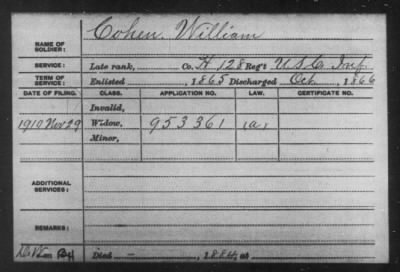 Cohen, William
NAME OF SOLDIER:
SERVICE: Late rank, Co. H 128 Reg't U.S.C. Inf.
TERM OF SERVICE: Enlisted , 1865 Discharged Oct , 1866
DATE OF FILING. CLASS. APPLICATION NO. LAW. CERTIFICATE NO.
Invalid,
1910 Nov 29 Widow, 953361
Minor,
ADDITIONAL SERVICES:
REMARKS:
Died - , 1884, at